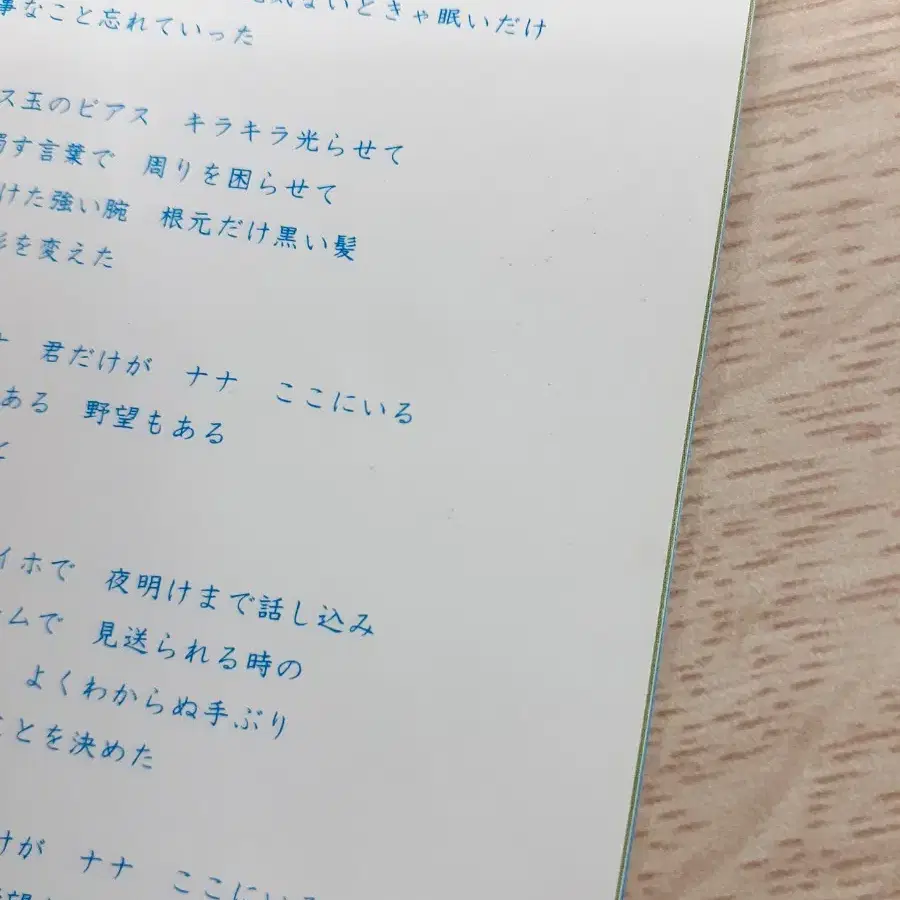 事なこと忘れていった
ないときゃ眠いだけ
ス玉のピアス キラキラ光らせて
す言葉で 周りを困らせて
けた強い腕 根元だけ黒い髪
を変えた
君だけが ナナ ここにいる
ある 野望もある
イホで 夜明けまで話し込み
ムで 見送られる時の
よくわからぬ手ぶり
ことを決めた
けが ナナ ここにいる